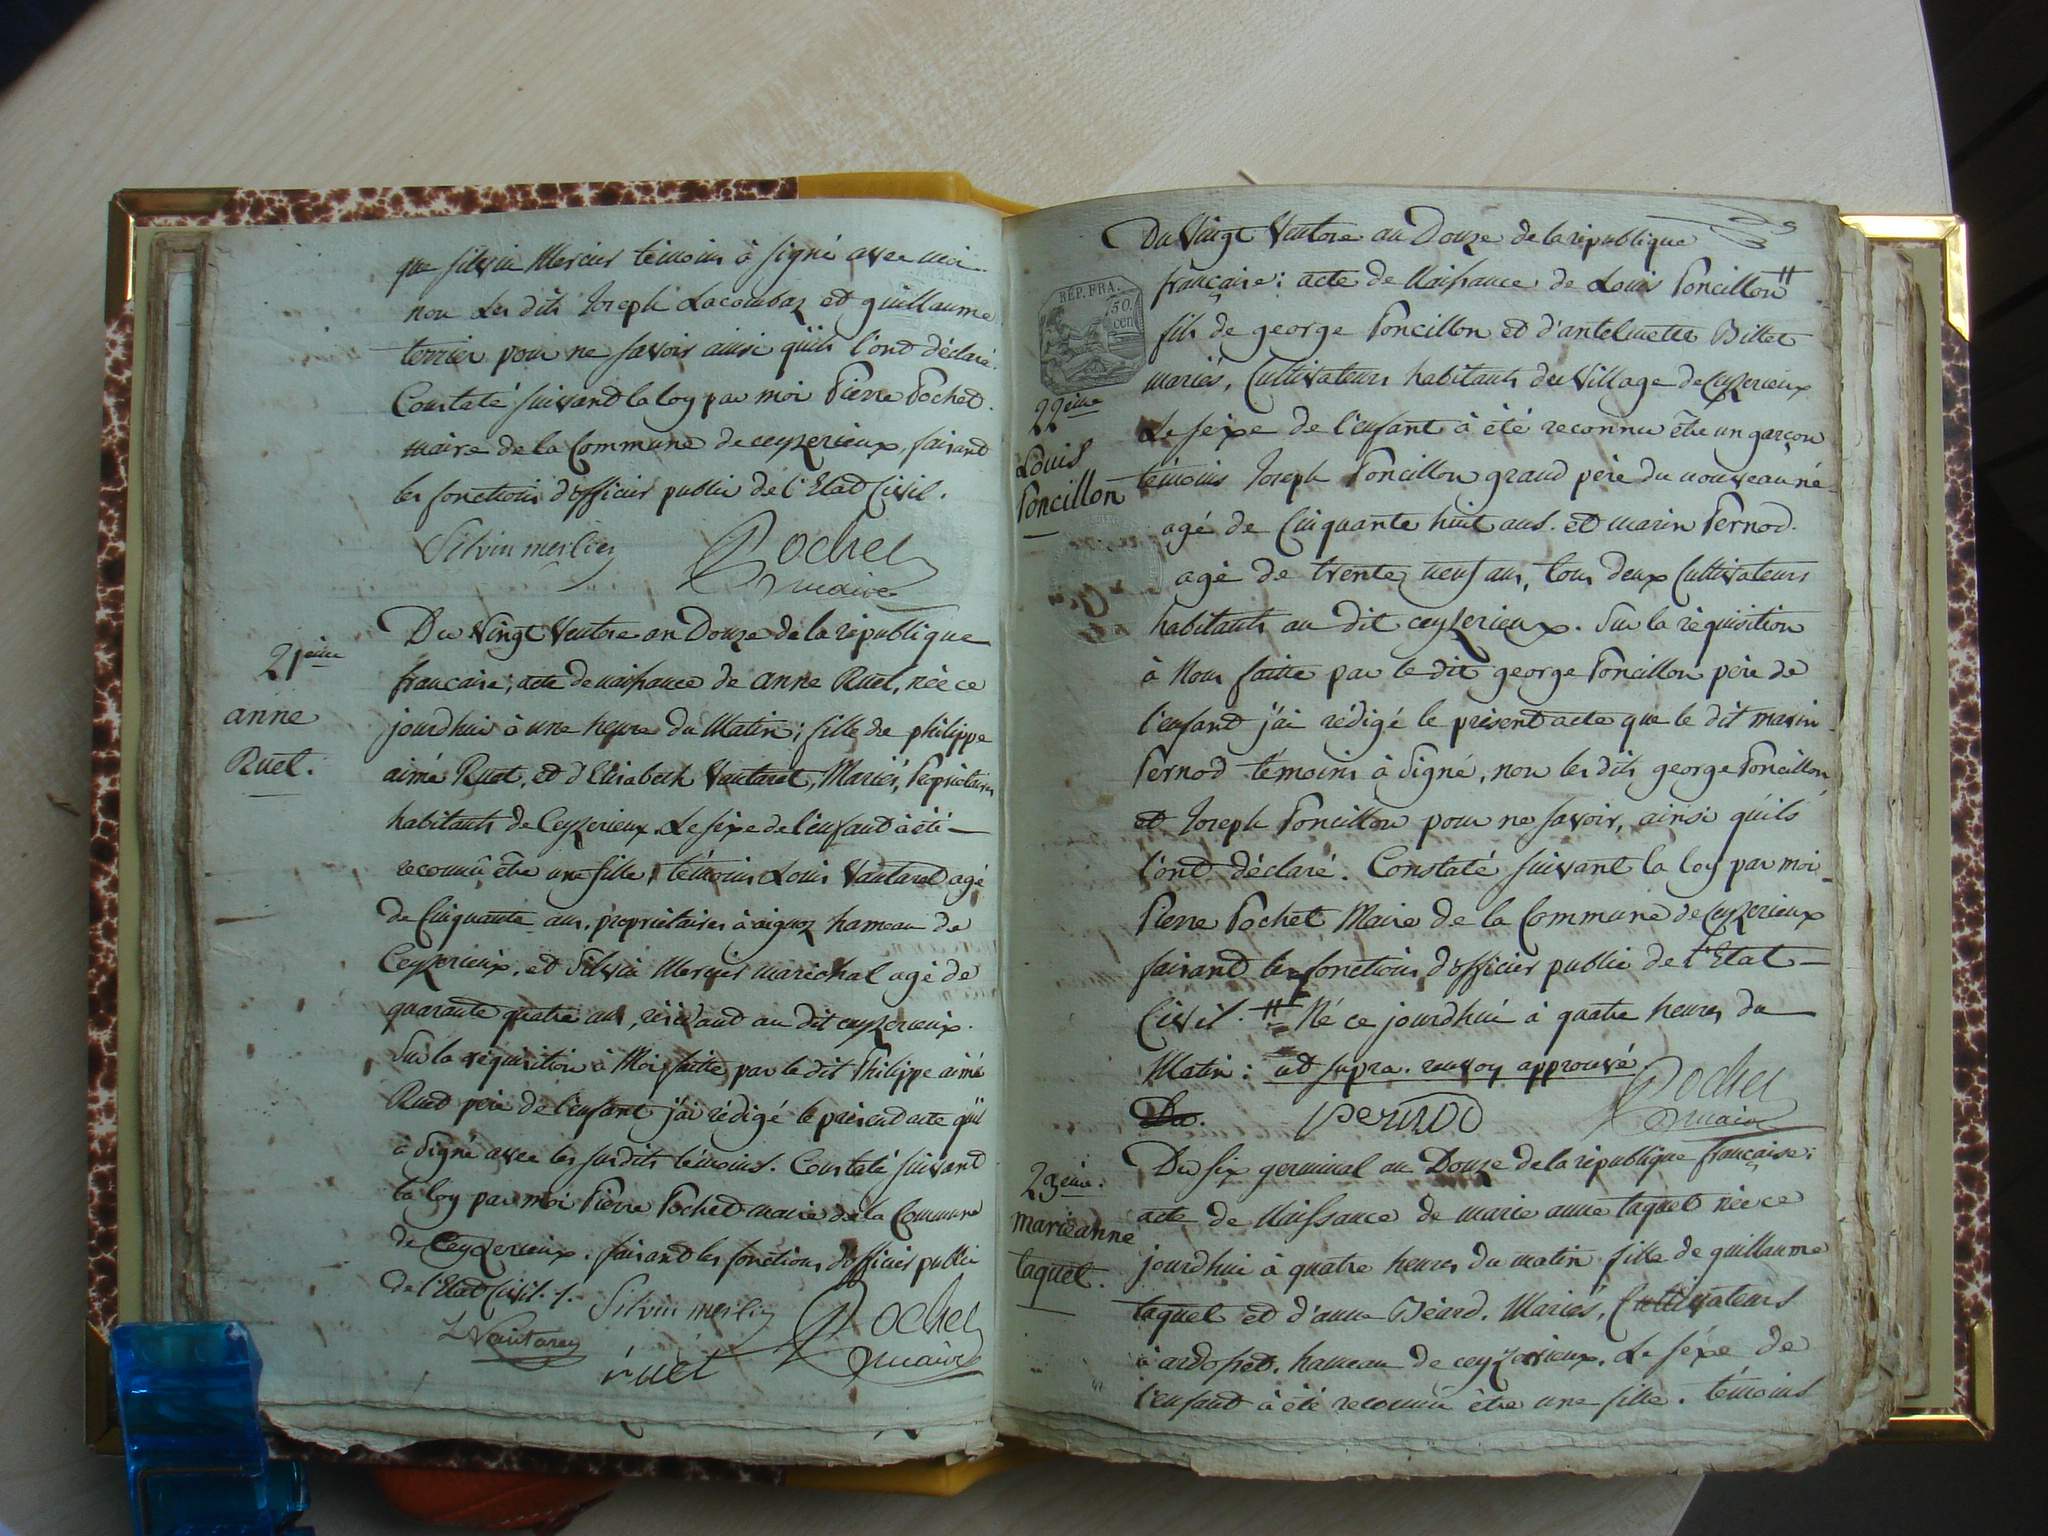 que silvin Mercier témoins à signé avec moi
non Les dits Joseph Lacombaz et guillaume
terrier pour ne savoir ainsi qu'ils l'ont déclaré.
Constaté suivant la loy par moi Pierre Pochet
maire de la Commune de ceyzerieux, faisant
les fonctions d'officier public de l'Etat Civil.
Silvin mercier
Pochet
maire
21ème
anne
Ruet.
Du Vingt Ventose an Douze de la république
francaise; acte de naissance de anne Ruet, née ce
jourdhui à une heure du Matin; fille de philippe
aimé Ruet, et d'Elisabeth Vautaret, Mariés, Propriétaires
habitants de Ceyzerieux. Le sexe de l'enfant à été
reconnû être une fille, témoins Louis Vautaret agé
de Cinquante ans, propriétaires à aignoz hameau de
Ceyzerieux, et Silvin Mercier maréchal agé de
quarante quatre ans, résidant au dit ceyzerieux.
Sur la réquisition à Moi faitte par le dit Philippe aimé
Ruet père de l'enfant j'ai rédigé le présent acte qu'il
à signé avec les susdits témoins. Constaté suivant
la loy par moi Pierre Pochet maire de la Commune
de Ceyzerieux, faisant les fonctions d'officier public
de l'Etat Civil.
Silvin mercier
Pochet
L Vautaret
ruet
maire
Du Vingt Ventose an Douze de la république
REP. FRA.
50.
cen
française: acte de Naissance de Louis Poncillon #
fils de george Poncillon et d'antelmette Billet
mariés, Cultivateurs habitants du Village de Ceyzerieux
22ème
Louis
Poncillon
Le sexe de l'enfant à été reconnu être un garçon
témoins Joseph Poncillon grand père du nouveau né
agé de Cinquante huit ans. et marin Pernod.
agé de trente neuf ans, tous deux Cultivateurs
habitants au dit ceyzerieux. Sur la réquisition
à Nous faitte par le dit george Poncillon père de
l'enfant j'ai rédigé le présent acte que le dit marin
Pernod témoins à signé, non les dits george Poncillon
et Joseph Poncillon pour ne savoir, ainsi qu'ils
l'ont déclaré. Constaté suivant la loy par moi
Pierre Pochet Maire de la Commune de Ceyzerieux
faisant les fonctions d'officier public de l'Etat
Civil. # Né ce jourdhui à quatre heures du
Matin: ut supra. renvoy approuvé
Du.
pernod
Pochet
maire
23ème.
marieanne
taquet.
Du six germinal an Douze de la république française:
acte de Naissance de marie anne taquet née ce
jourdhui à quatre heures du matin fille de guillaume
taquet et d'anne Béard, Mariés, Cultivateurs
à ardosset, hameau de ceyzerieux. Le séxe de
l'enfant à été reconnû être une fille. témoins